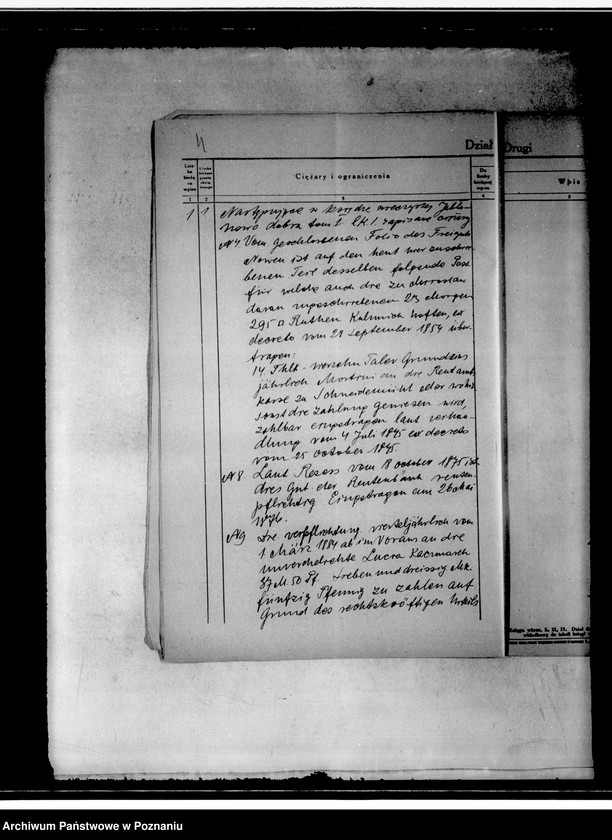 Dział Drugi
Licz-
ba
bieżą-
ca
wpisu
Liczba
bieżąca
Ciężary i ograniczenia
Do
liczby
bieżącej
wpisu
Wpis
1 2 3 4
1 1 Następujące w księdze wieczystej Jabło-
nowo dobra tom I k. 1. zapisane ciężary
N4 Vom Geschlossenen Folio des Freiguts
Nowen ist auf den heut hier zuschrie-
benen Teil desselben folgende Post
für welche auch die zu
davon zugeschriebenen 23 Morgen
295 □ Ruthen haften, ex
decreto vom 29 September 1854 über-
tragen:
14 Thlr - vierzehn Taler Grundzins
jährlich an die Rentamts
kasse zu Schneidemühl oder wohin
sonst die Zahlung gewiesen wird,
zahlbar eingetragen laut Verhan-
dlung vom 4 Juli 1845 ex decreto
vom 25 October 1845.
N8 Laut Rezess vom 18 October 1875 ist
dies Gut der Rentenbank renten-
pflichtig Eingetragen am 26 Mai
1876.
N9 Die Verpflichtung vierteljährlich vom
1 März 1884 ab im Voraus an die
unverehelichte Lucia Kaczmarek
37 M. 50 Pf. Sieben und dreissig Mk.
fünfzig Pfennig zu zahlen auf
Grund des rechtskräftigen Urteils